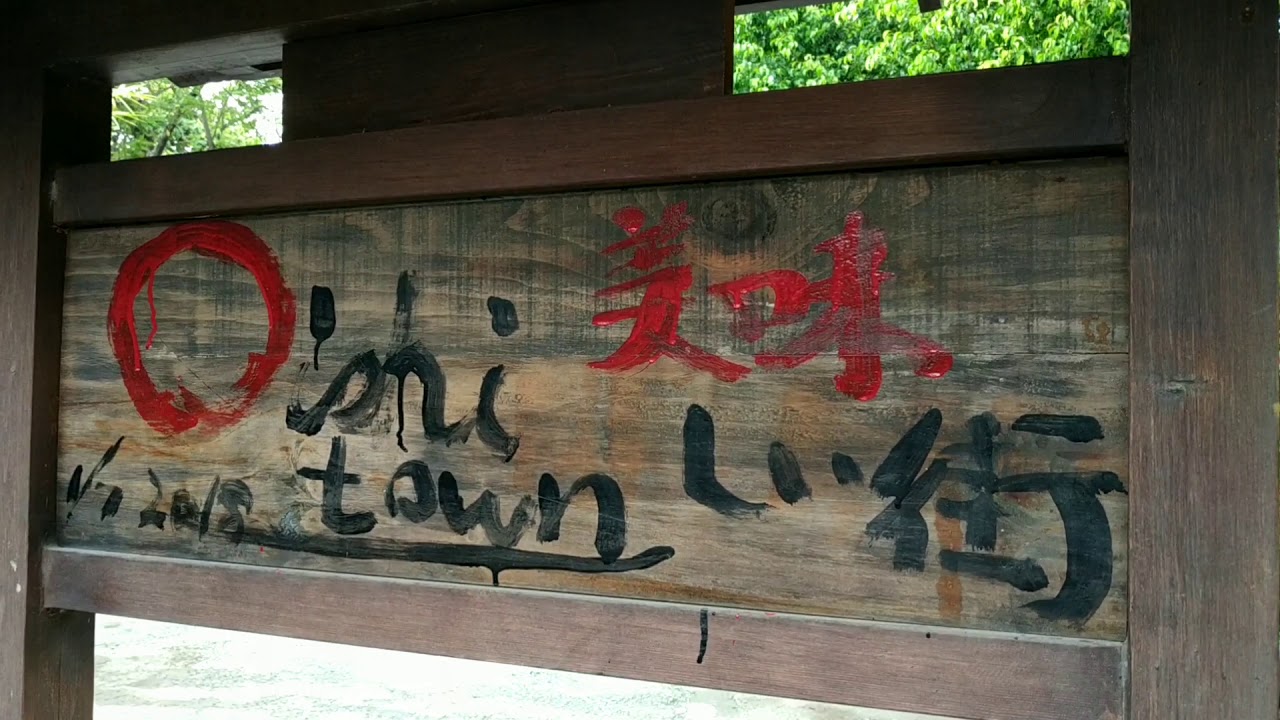 Oishi
town
美味
しい街